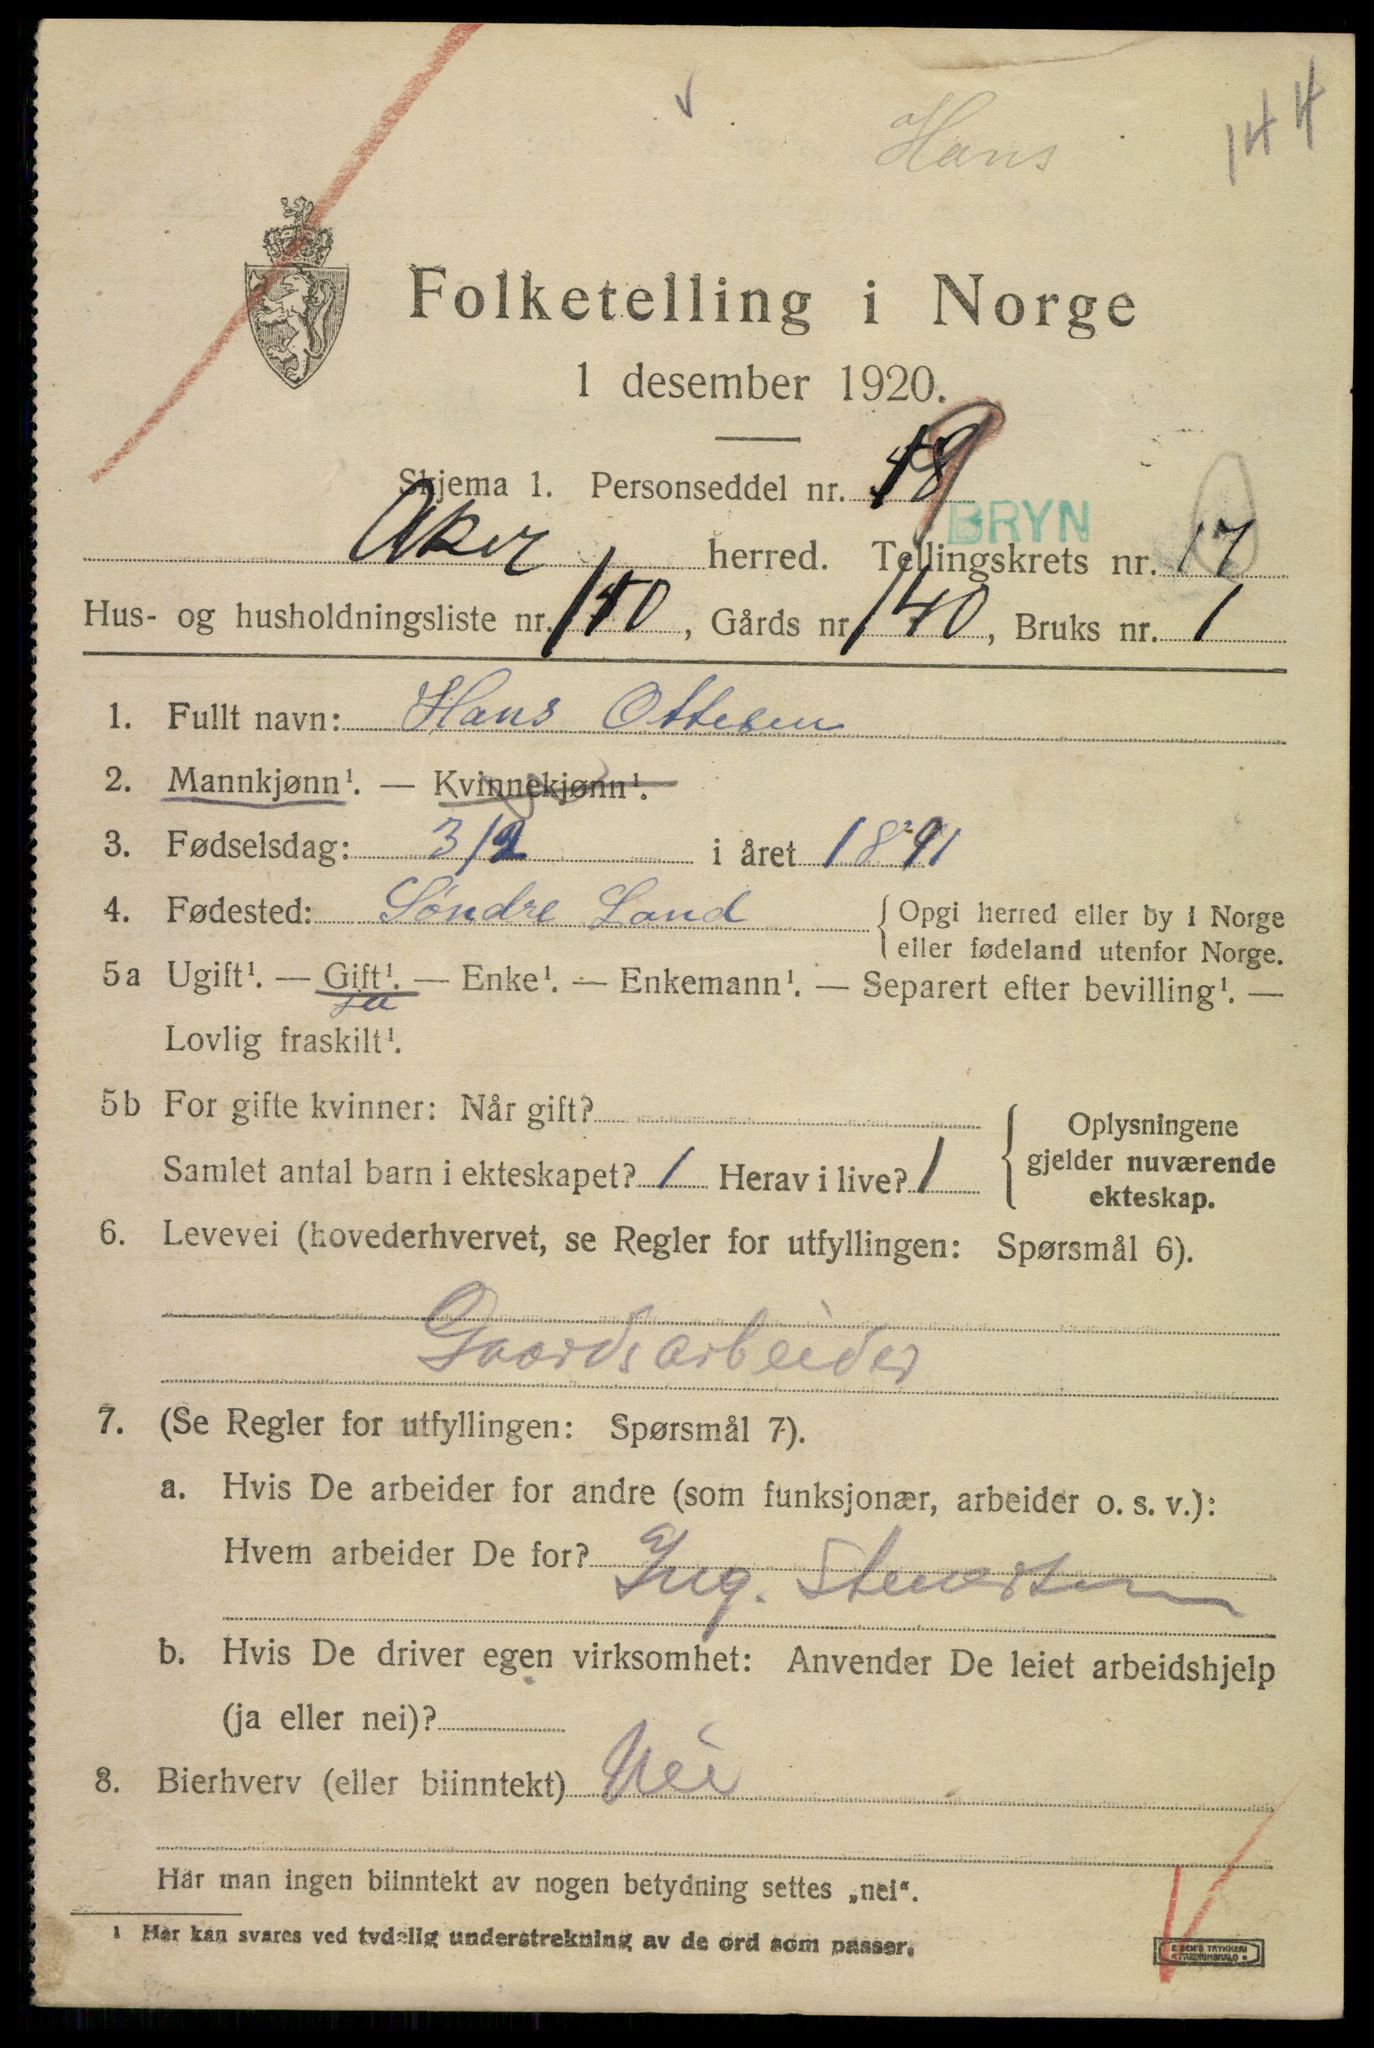 Hans
144
Folketelling i Norge
1 desember 1920.
Skjema 1. Personseddel nr.
BRYN
Aker herred. Tellingskrets nr. 17
Hus- og husholdningsliste nr. 140, Gårds nr. 140, Bruks nr. 1
1. Fullt navn: Hans Ottesen
2. Mannkjønn¹. — Kvinnekjønn¹.
3. Fødselsdag: 3/2 i året 1891
4. Fødested: Søndre Land { Opgi herred eller by i Norge
eller fødeland utenfor Norge.
5a Ugift¹. — Gift¹. — Enke¹. — Enkemann¹. — Separert efter bevilling¹. —
ja
Lovlig fraskilt¹.
5b For gifte kvinner: Når gift?
Samlet antal barn i ekteskapet? 1 Herav i live? 1
{ Oplysningene
gjelder nuværende
ekteskap.
6. Levevei (hovederhvervet, se Regler for utfyllingen: Spørsmål 6).
Gaardsarbeider
7. (Se Regler for utfyllingen: Spørsmål 7).
a. Hvis De arbeider for andre (som funksjonær, arbeider o. s. v.):
Hvem arbeider De for? Ing.
b. Hvis De driver egen virksomhet: Anvender De leiet arbeidshjelp
(ja eller nei)?
8. Bierhverv (eller biinntekt) Nei
Har man ingen biinntekt av nogen betydning settes „nei“.
1 Her kan svares ved tydelig understrekning av de ord som passer.